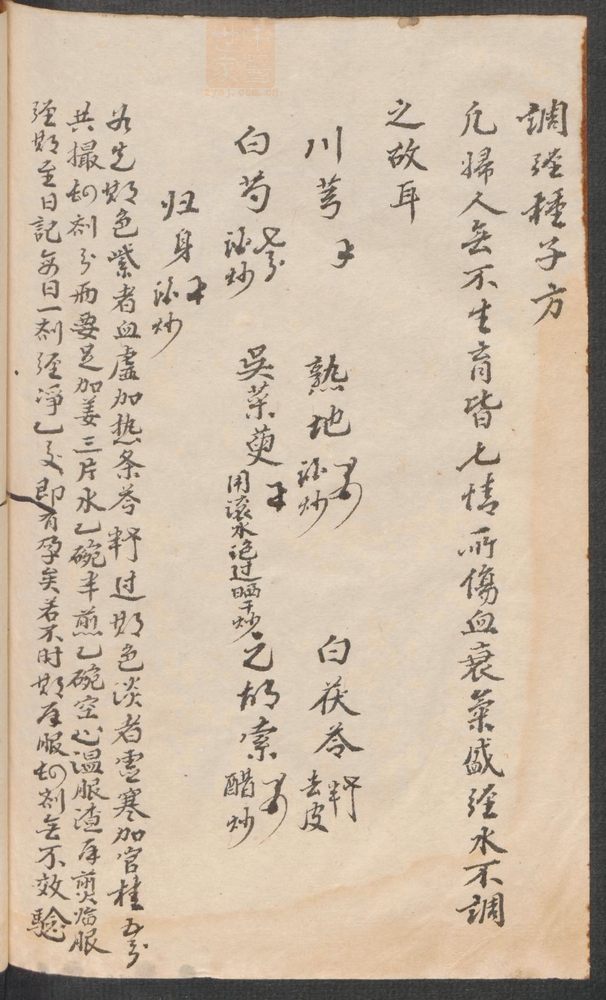 調經種子方
凡婦人無不生育皆七情所傷血衰氣盛經水不調
之故耳
川芎 熟地 酒炒 白茯苓 去皮
白芍 酒炒 吳茱萸 用滾水泡过晒干炒 元胡索 醋炒
归身 酒炒
若先期色紫者血虛加熱条芩 过期色淡者虛寒加官桂五分
共撮四剂分兩要足加姜三片水乙碗半煎乙碗空心温服渣再煎臨服
經期至日記每日一剂經淨乙交即有孕矣若不时期再服四剂無不效驗